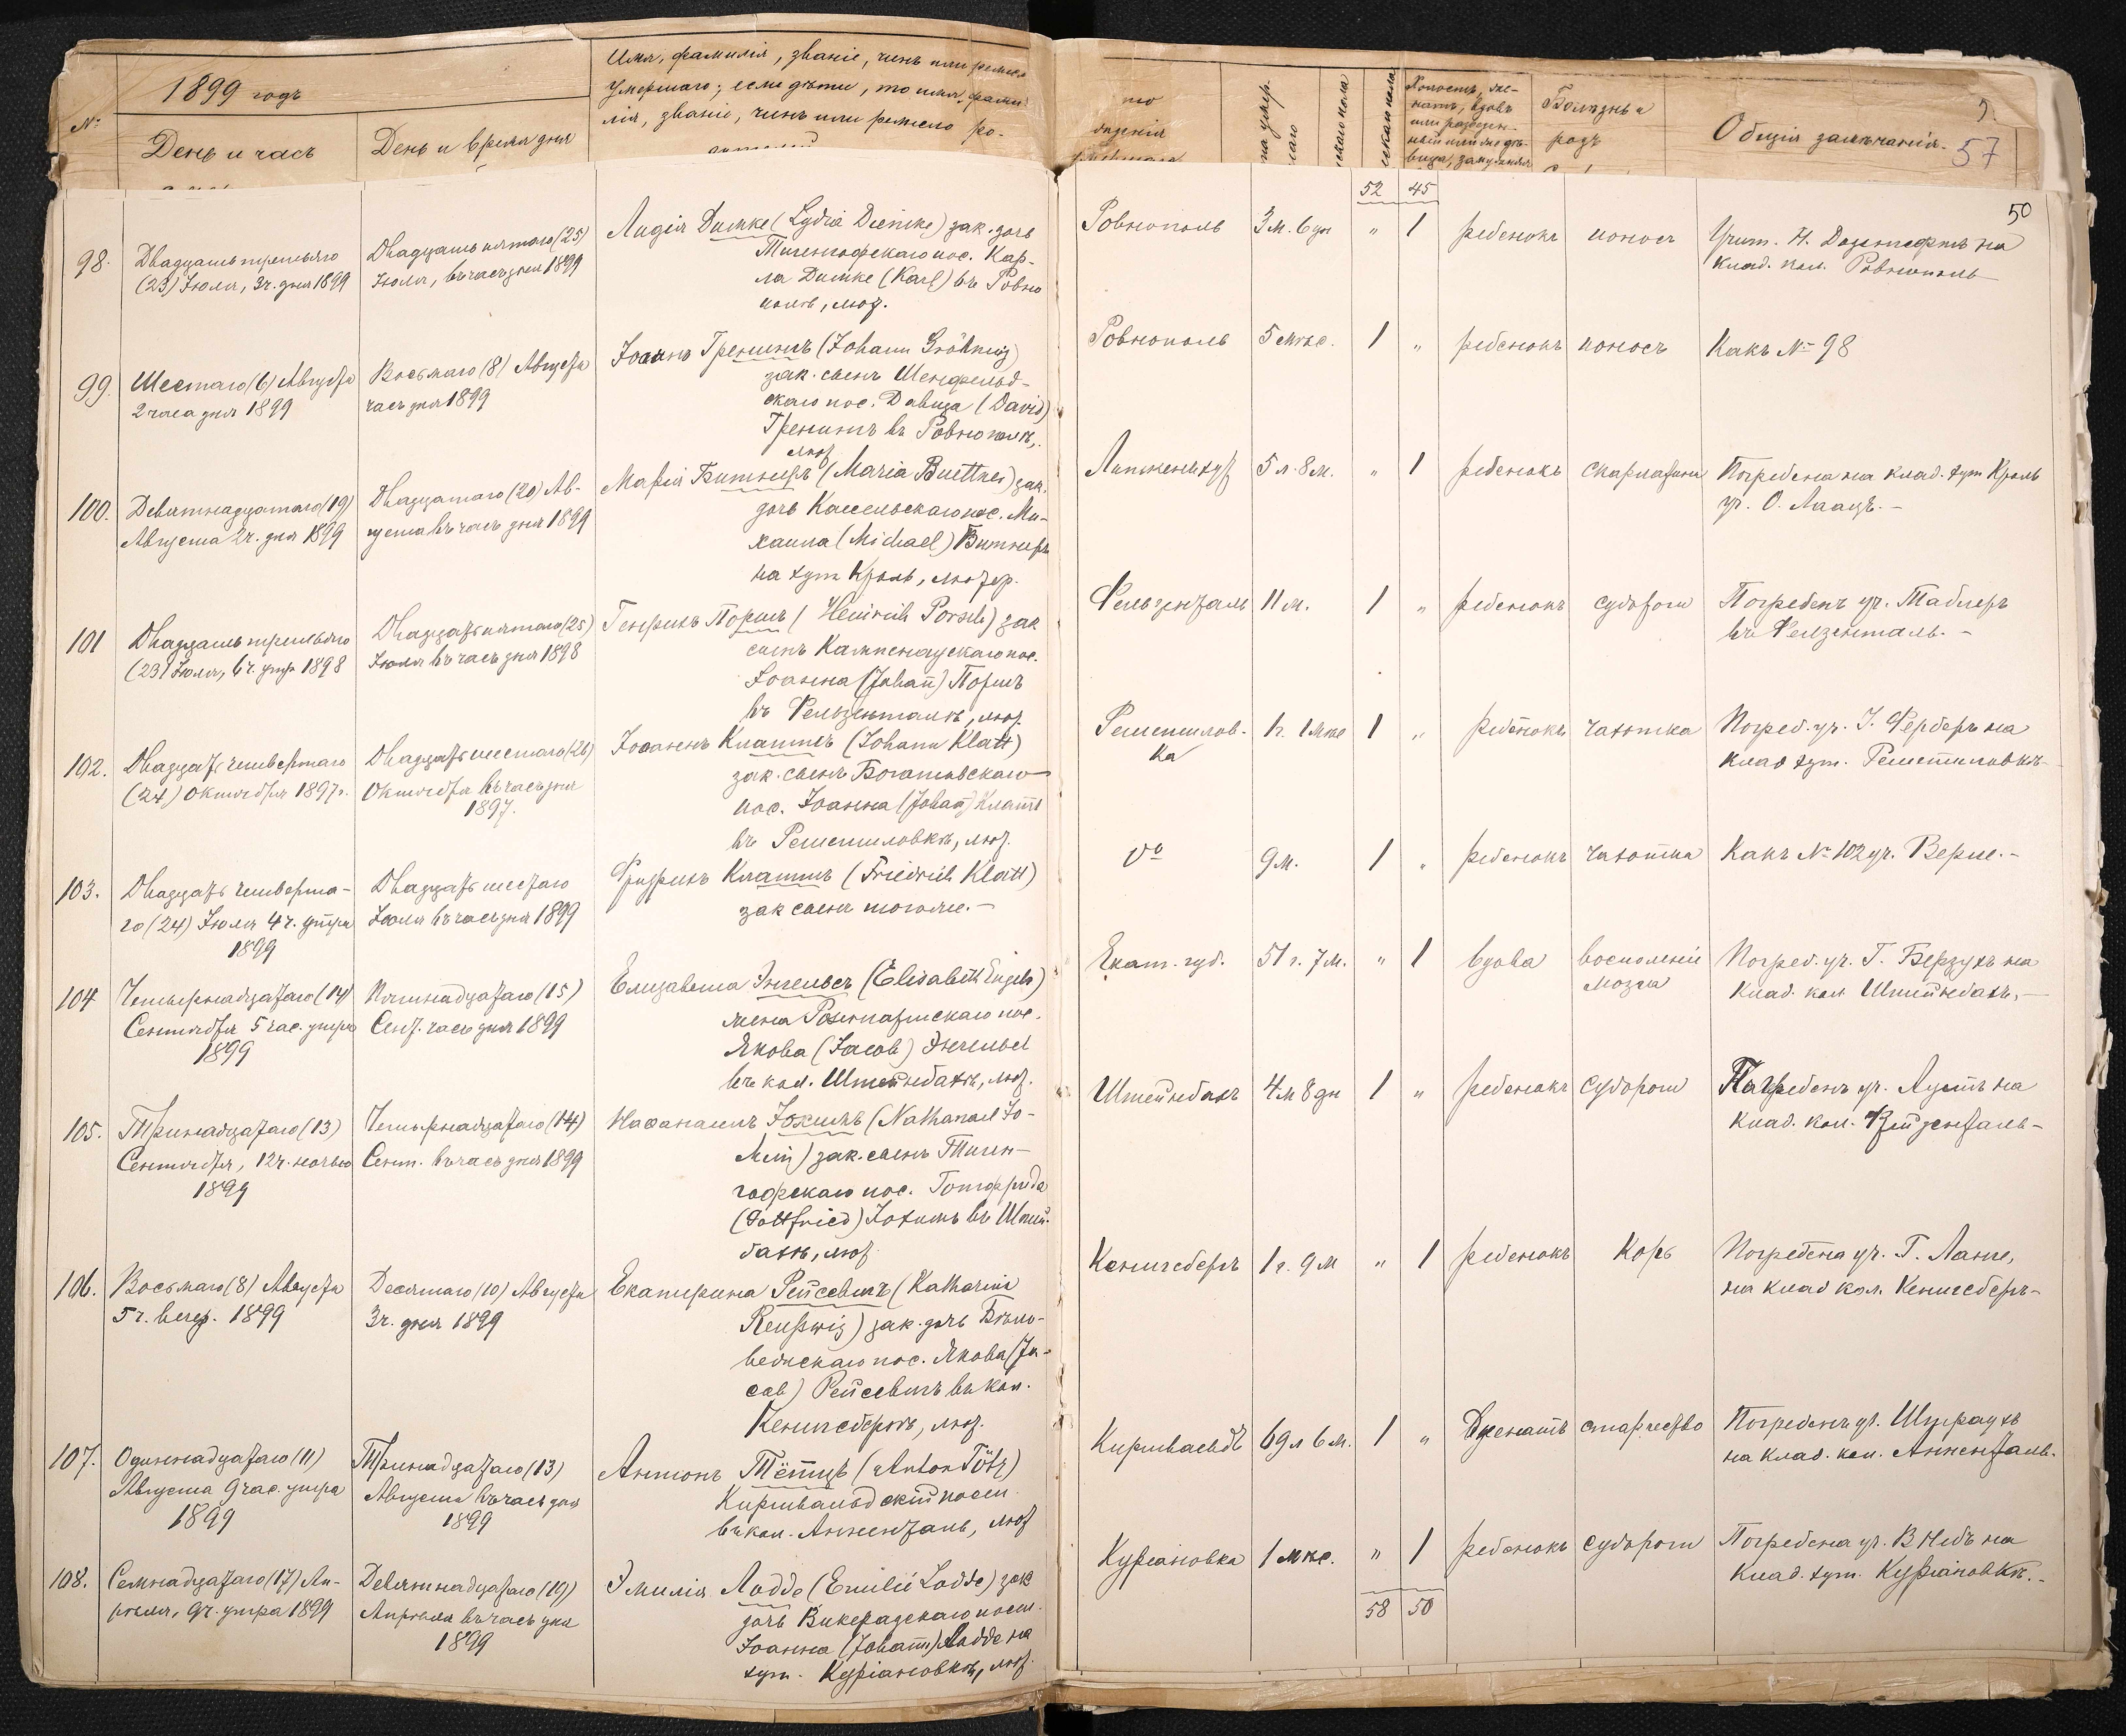 №
1899 годъ
День и часъ
День и время дня
Имя, фамилія, званіе, чинъ или ремесл
умершаго; если дѣти, то имя, фами
лія, званіе, чинъ или ремесло ро-
Холостъ, же-
натъ, вдовъ
или разведен-
Болѣзнь и
родъ
Общія замѣчанія.
57
50
52 45
98.
Двадцать третьяго
(23) Іюля, 3ч. дня 1899
Двадцать пятаго (25)
Іюля, въ часъ дня 1899
Лидія Димке (Lydia Diemke) зак. дочь
Тигенгофскаго пос. Кар-
ла Димке (Karl) въ Ровно
полѣ, лют.
Ровнополь
3 м. 6 дн
" 1
ребенокъ
поносъ
Учит. Н.
на
клад. кол. Ровнополь
99.
Шестаго (6) Августа
2 часа дня 1899
Восьмаго (8) Августа
часъ дня 1899
Іоаннъ Гренингъ (Johann Gröhning)
зак. сынъ Шенфельд-
скаго пос. Давида (David)
Гренингъ въ Ровнополѣ,
лют
Ровнополь
5 мѣс.
1 "
ребенокъ
поносъ
Какъ № 98
100.
Девятнадцатаго (19)
Августа 2ч. дня 1899
Двадцатаго (20) Ав-
густа въ часъ дня 1899
Марія Битнеръ (Maria Buettner) зак.
дочь Кассельскаго пос. Ми-
хаила (Michael) Битнеръ
на хут Кроль, лютер.
5 л. 8 м.
" 1
ребенокъ
скарлатина
Погребена на клад. хут Кроль
уч. О. Лаацъ. -
101
Двадцать третьяго
(23) Іюля, 6 ч. утр 1898
Двадцать пятаго (25)
Іюля въ часъ дня 1898
Генрихъ Поршъ (Heinrich Porsch) зак
сынъ Кампенаускаго пос.
Іоанна (Johann) Поршъ
въ Фельзенталѣ, лют.
Фельзенталь
11 м.
1 "
ребенокъ
судороги
Погребенъ уч. Таблеръ
въ Фелзенталь. -
102.
Двадцать четвертаго
(24) Октября 1897 г.
Двадцать шестаго (26)
Октября въ часъ дня
1897.
Іоаннъ Клаттъ (Johann Klatt)
зак. сынъ Богатовскаго
пос. Іоанна (Johann) Клаттъ
въ Решетиловкѣ, лют.
Решетилов-
ка
1 г. 1 мѣс
1 "
ребенокъ
чахотка
Погреб. уч. І. Ферберъ на
клад хут. Решетиловкѣ-
103.
Двадцать четверта-
го (24) Іюля 4 ч. утра
1899
Двадцать шестаго
Іюля въ часъ дня 1899
Фридрихъ Клаттъ (Friedrich Klatt)
зак сынъ тогоже. -
9 м.
1 "
ребенокъ
чахотка
Какъ № 102 уч. Верне. -
104
Четырнадцатаго (14)
Сентября 5 час. утра
1899
Пятнадцатаго (15)
Сент. часъ дня 1899
Елизавета Энгельсъ (Elisabeth Engels)
жена Розенгартскаго пос.
Якова (Jacob) Энгельсъ
въ кол. Штейнбахъ, лют.
Екат. губ.
51 г. 7 м.
" 1
вдова
воспаленіе
мозга
Погреб. уч. Г. Берзухъ на
клад. кол Штейнбахъ. -
105.
Тринадцатаго (13)
Сентября, 12ч. ночью
1899
Четырнадцатаго (14)
Сент. въ часъ дня 1899
Нафанаилъ Іохимъ (Nathanael Jo-
chim) зак. сынъ Тиген-
гофскаго пос. Готфрида
(Gottfried) Іохимъ въ Штей-
бахѣ, лют
Штейнбахъ
4 м 8 дн
1 "
ребенокъ
судороги
Погребенъ уч. Аустъ на
клад. кол. Вейзенталь-
106.
Восьмаго (8) Августа
5 ч. вечер. 1899
Десятаго (10) Августа
3ч. дня 1899
Екатерина Рейсевигъ (Katharina
Reußwig) зак. дочь Бѣло-
вежскаго пос. Якова (Ja-
cob) Рейсевигъ въ кол.
Кенигсбергъ, лют.
Кенигсбергъ
1 г. 9 м
" 1
ребенокъ
корь
Погребена уч. Г. Ланге,
на клад кол. Кенигсбергъ-
107.
Одиннадцатаго (11)
Августа 9 час. утра
1899
Тринадцатаго (13)
Августа въ часъ дня
1899
Антонъ Тётцъ (Anton Tötz)
Киршвальдскій посел
въ кол. Анненталь, лют
Киршвальдъ
69 л 6 м.
1 "
женатъ
старчество
Погребенъ уч. Штраухъ
на клад. кол. Анненталь.
108.
Семнадцатаго (17) Ап-
рѣля, 9ч. утра 1899
Девятнадцатаго (19)
Апрѣля въ часъ дня
1899
Эмилія Ладде (Emilie Ladde) зак
дочь Викераускаго посел.
Іоанна (Johann) Ладде на
хут. Куріановкѣ, лют.
Куріановка
1 мѣс.
" 1
ребенокъ
судороги
Погребена уч. В Нейъ на
клад. хут. Куріановкѣ. -
58 50